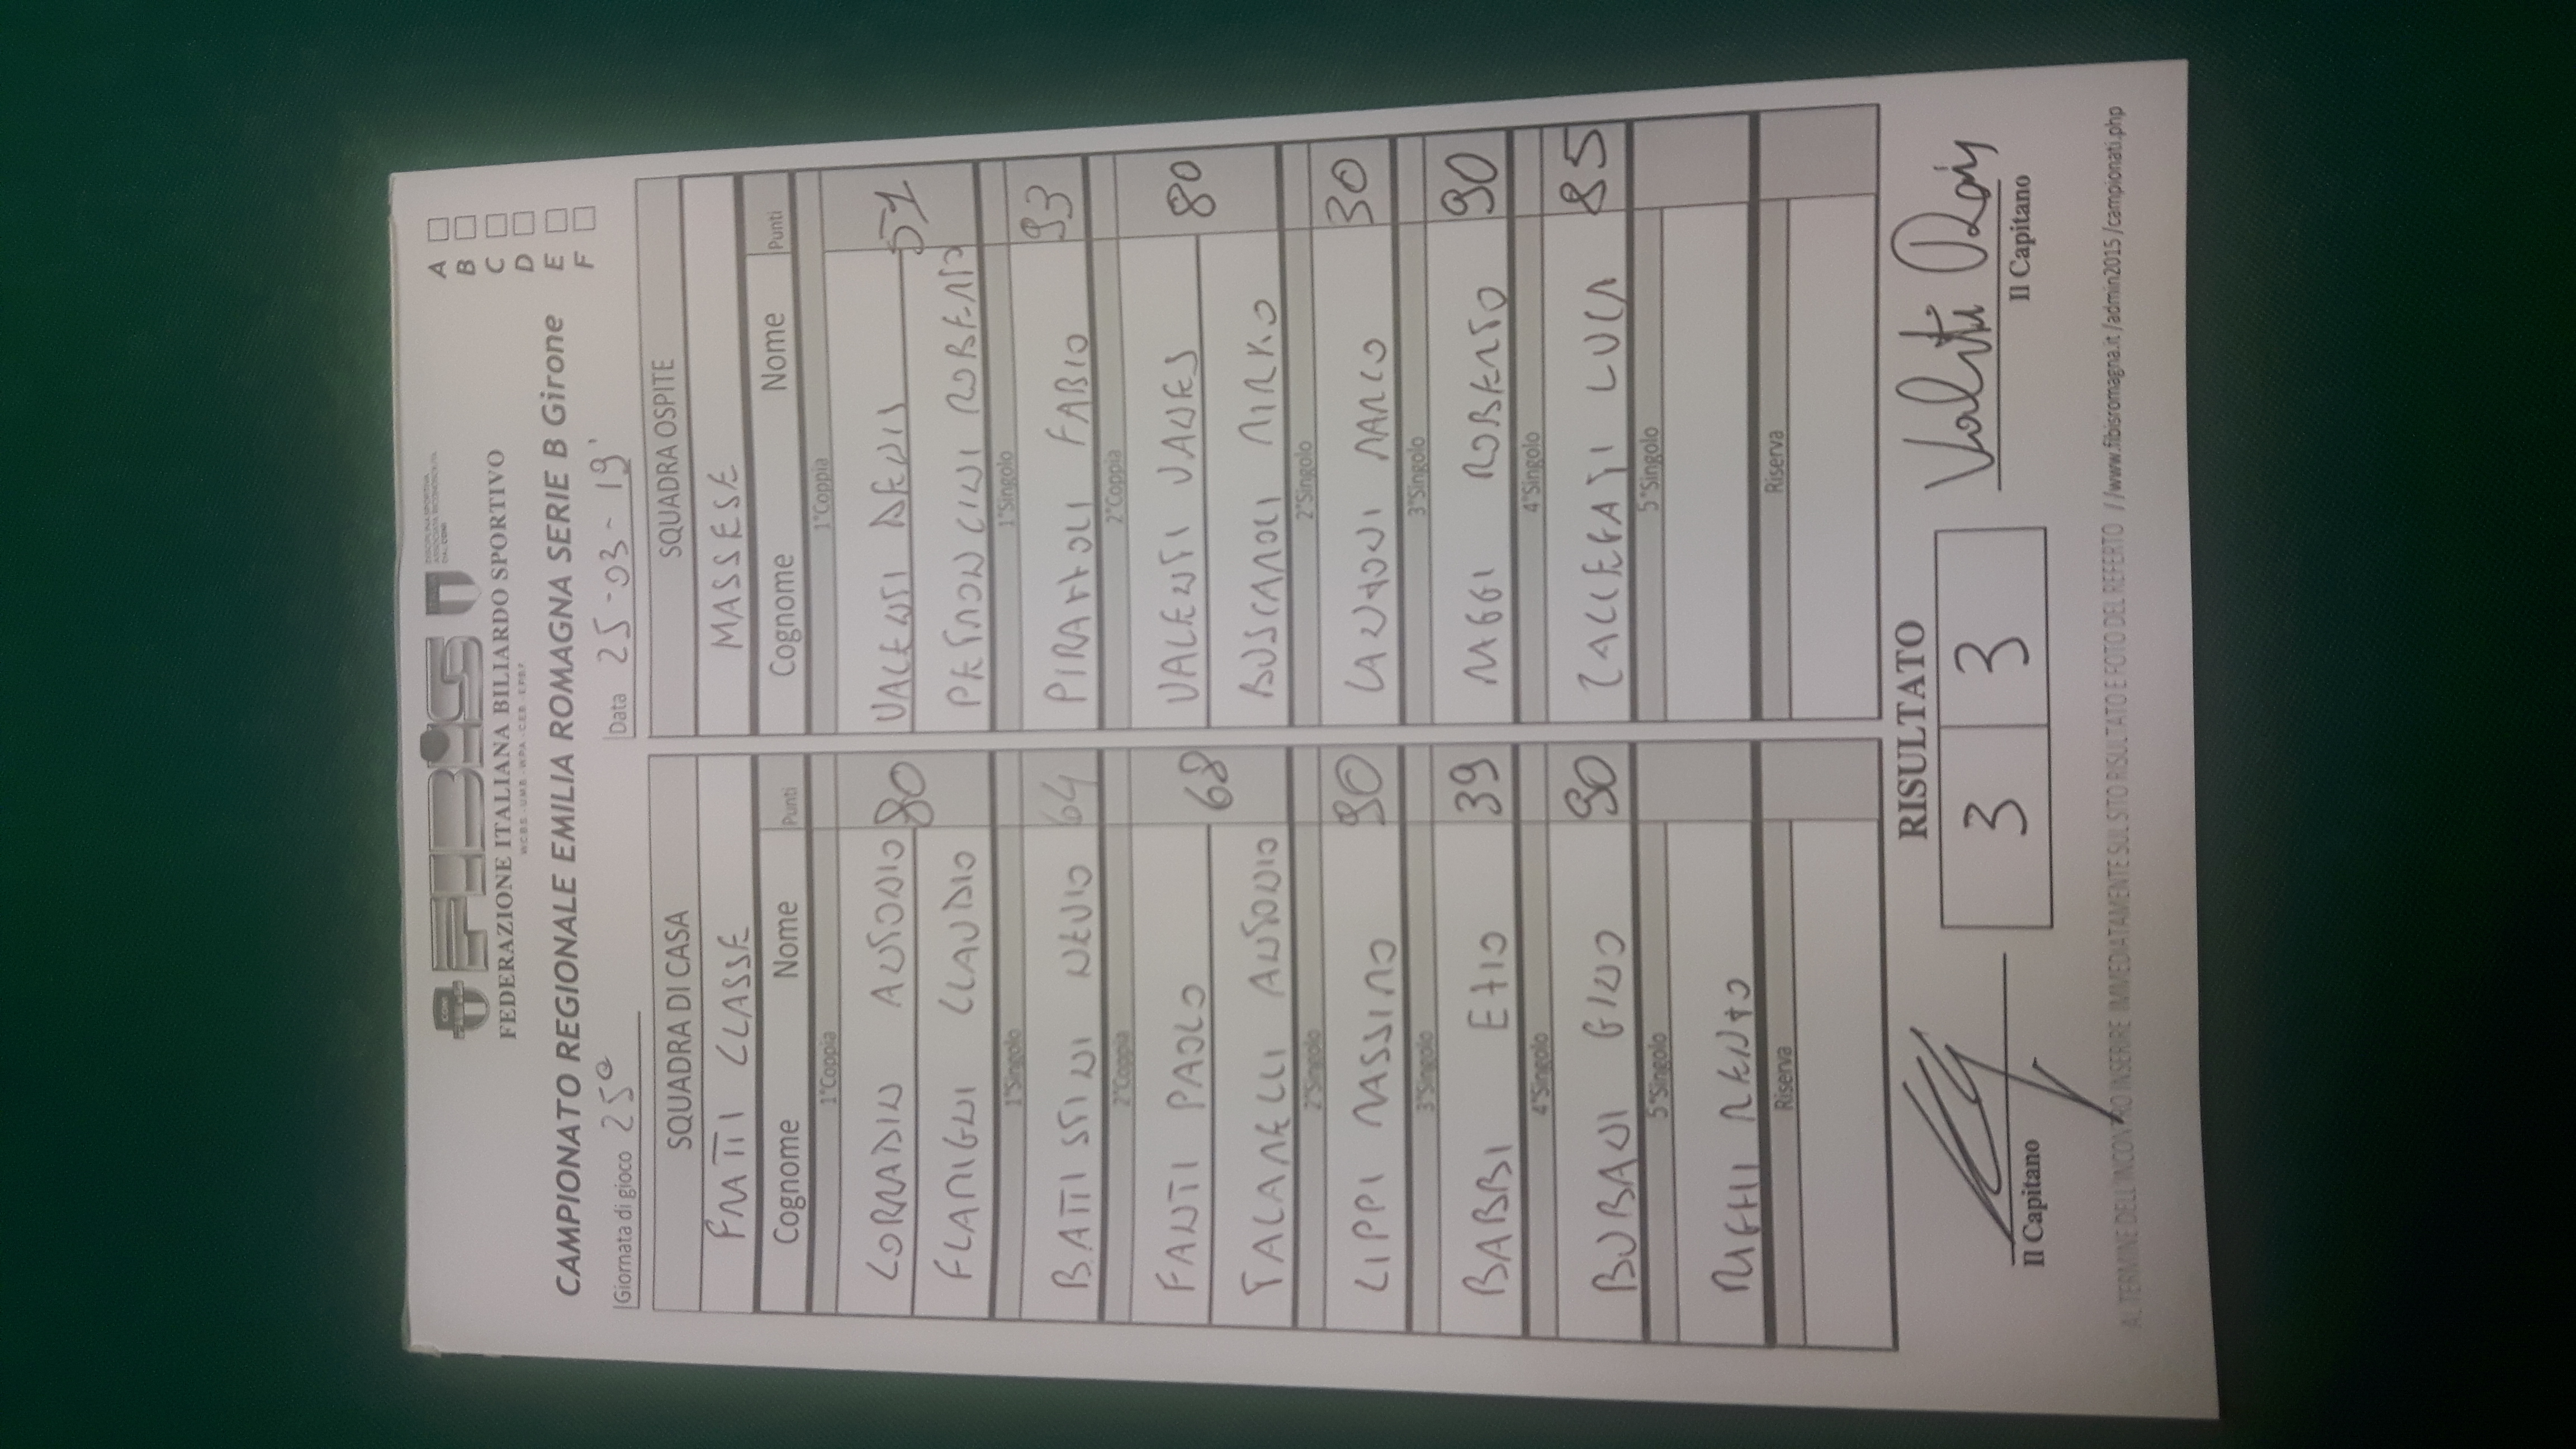 FEDERAZIONE ITALIANA BILIARDO SPORTIVO
CAMPIONATO REGIONALE EMILIA ROMAGNA SERIE B Girone
A
B
C
D
E
F
Giornata di gioco 25ª
Data 25-03-19
SQUADRA DI CASA
SQUADRA OSPITE
FRATTI CLASSE
MASSESE
Cognome Nome Punti
Cognome Nome Punti
1°Coppia
1°Coppia
CORRADIN ANTONIO 80
VALENTI DENIS 57
FLAMIGNI CLAUDIO
PETRONCINI ROBERTO
1°Singolo
1°Singolo
BATTISTINI NEVIO 64
PIRAZZOLI FABIO 93
2°Coppia
2°Coppia
FANTI PAOLO 68
VALENTI VALVES 80
TALAMELLI ANTONIO
BUSCAROLI MIRKO
2°Singolo
2°Singolo
LIPPI MASSIMO 90
LANZONI MARCO 30
3°Singolo
3°Singolo
BABBI EZIO 39
MAGGI ROBERTO 90
4°Singolo
4°Singolo
BURBANI GINO 90
CALLEGATI LUCA 85
5°Singolo
5°Singolo
RIGHI RENZO
Riserva
Riserva
RISULTATO
3 3
Il Capitano
Il Capitano
AL TERMINE DELL'INCONTRO INSERIRE IMMEDIATAMENTE SUL SITO RISULTATO E FOTO DEL REFERTO //www.fibisromagna.it /admin2015/campionati.php